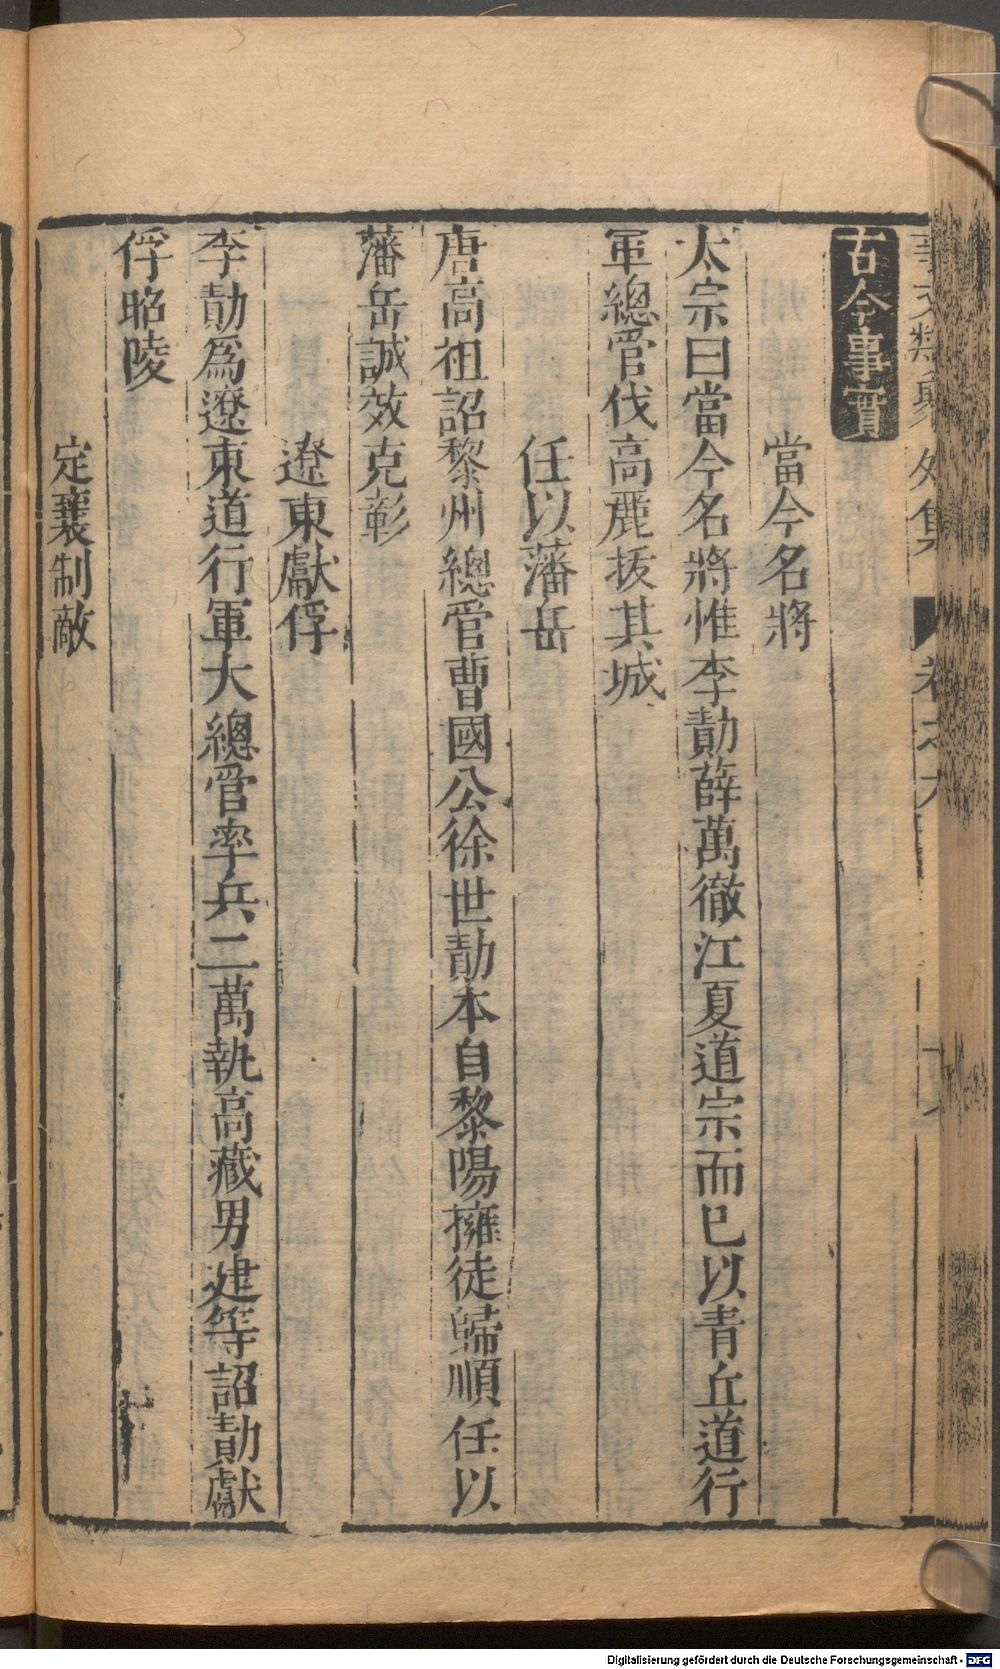 事文類聚外集 卷之六
古今事實
當今名將
太宗曰當今名將惟李勣薛萬徹江夏道宗而已以青丘道行
軍總管伐高麗拔其城
任以藩岳
唐高祖詔黎州總管曹國公徐世勣本自黎陽擁徒歸順任以
藩岳誠效克彰
遼東獻俘
李勣為遼東道行軍大總管率兵二萬執高藏男建等詔勣獻
俘昭陵
定襄制敵
Digitalisierung gefördert durch die Deutsche Forschungsgemeinschaft - DFG